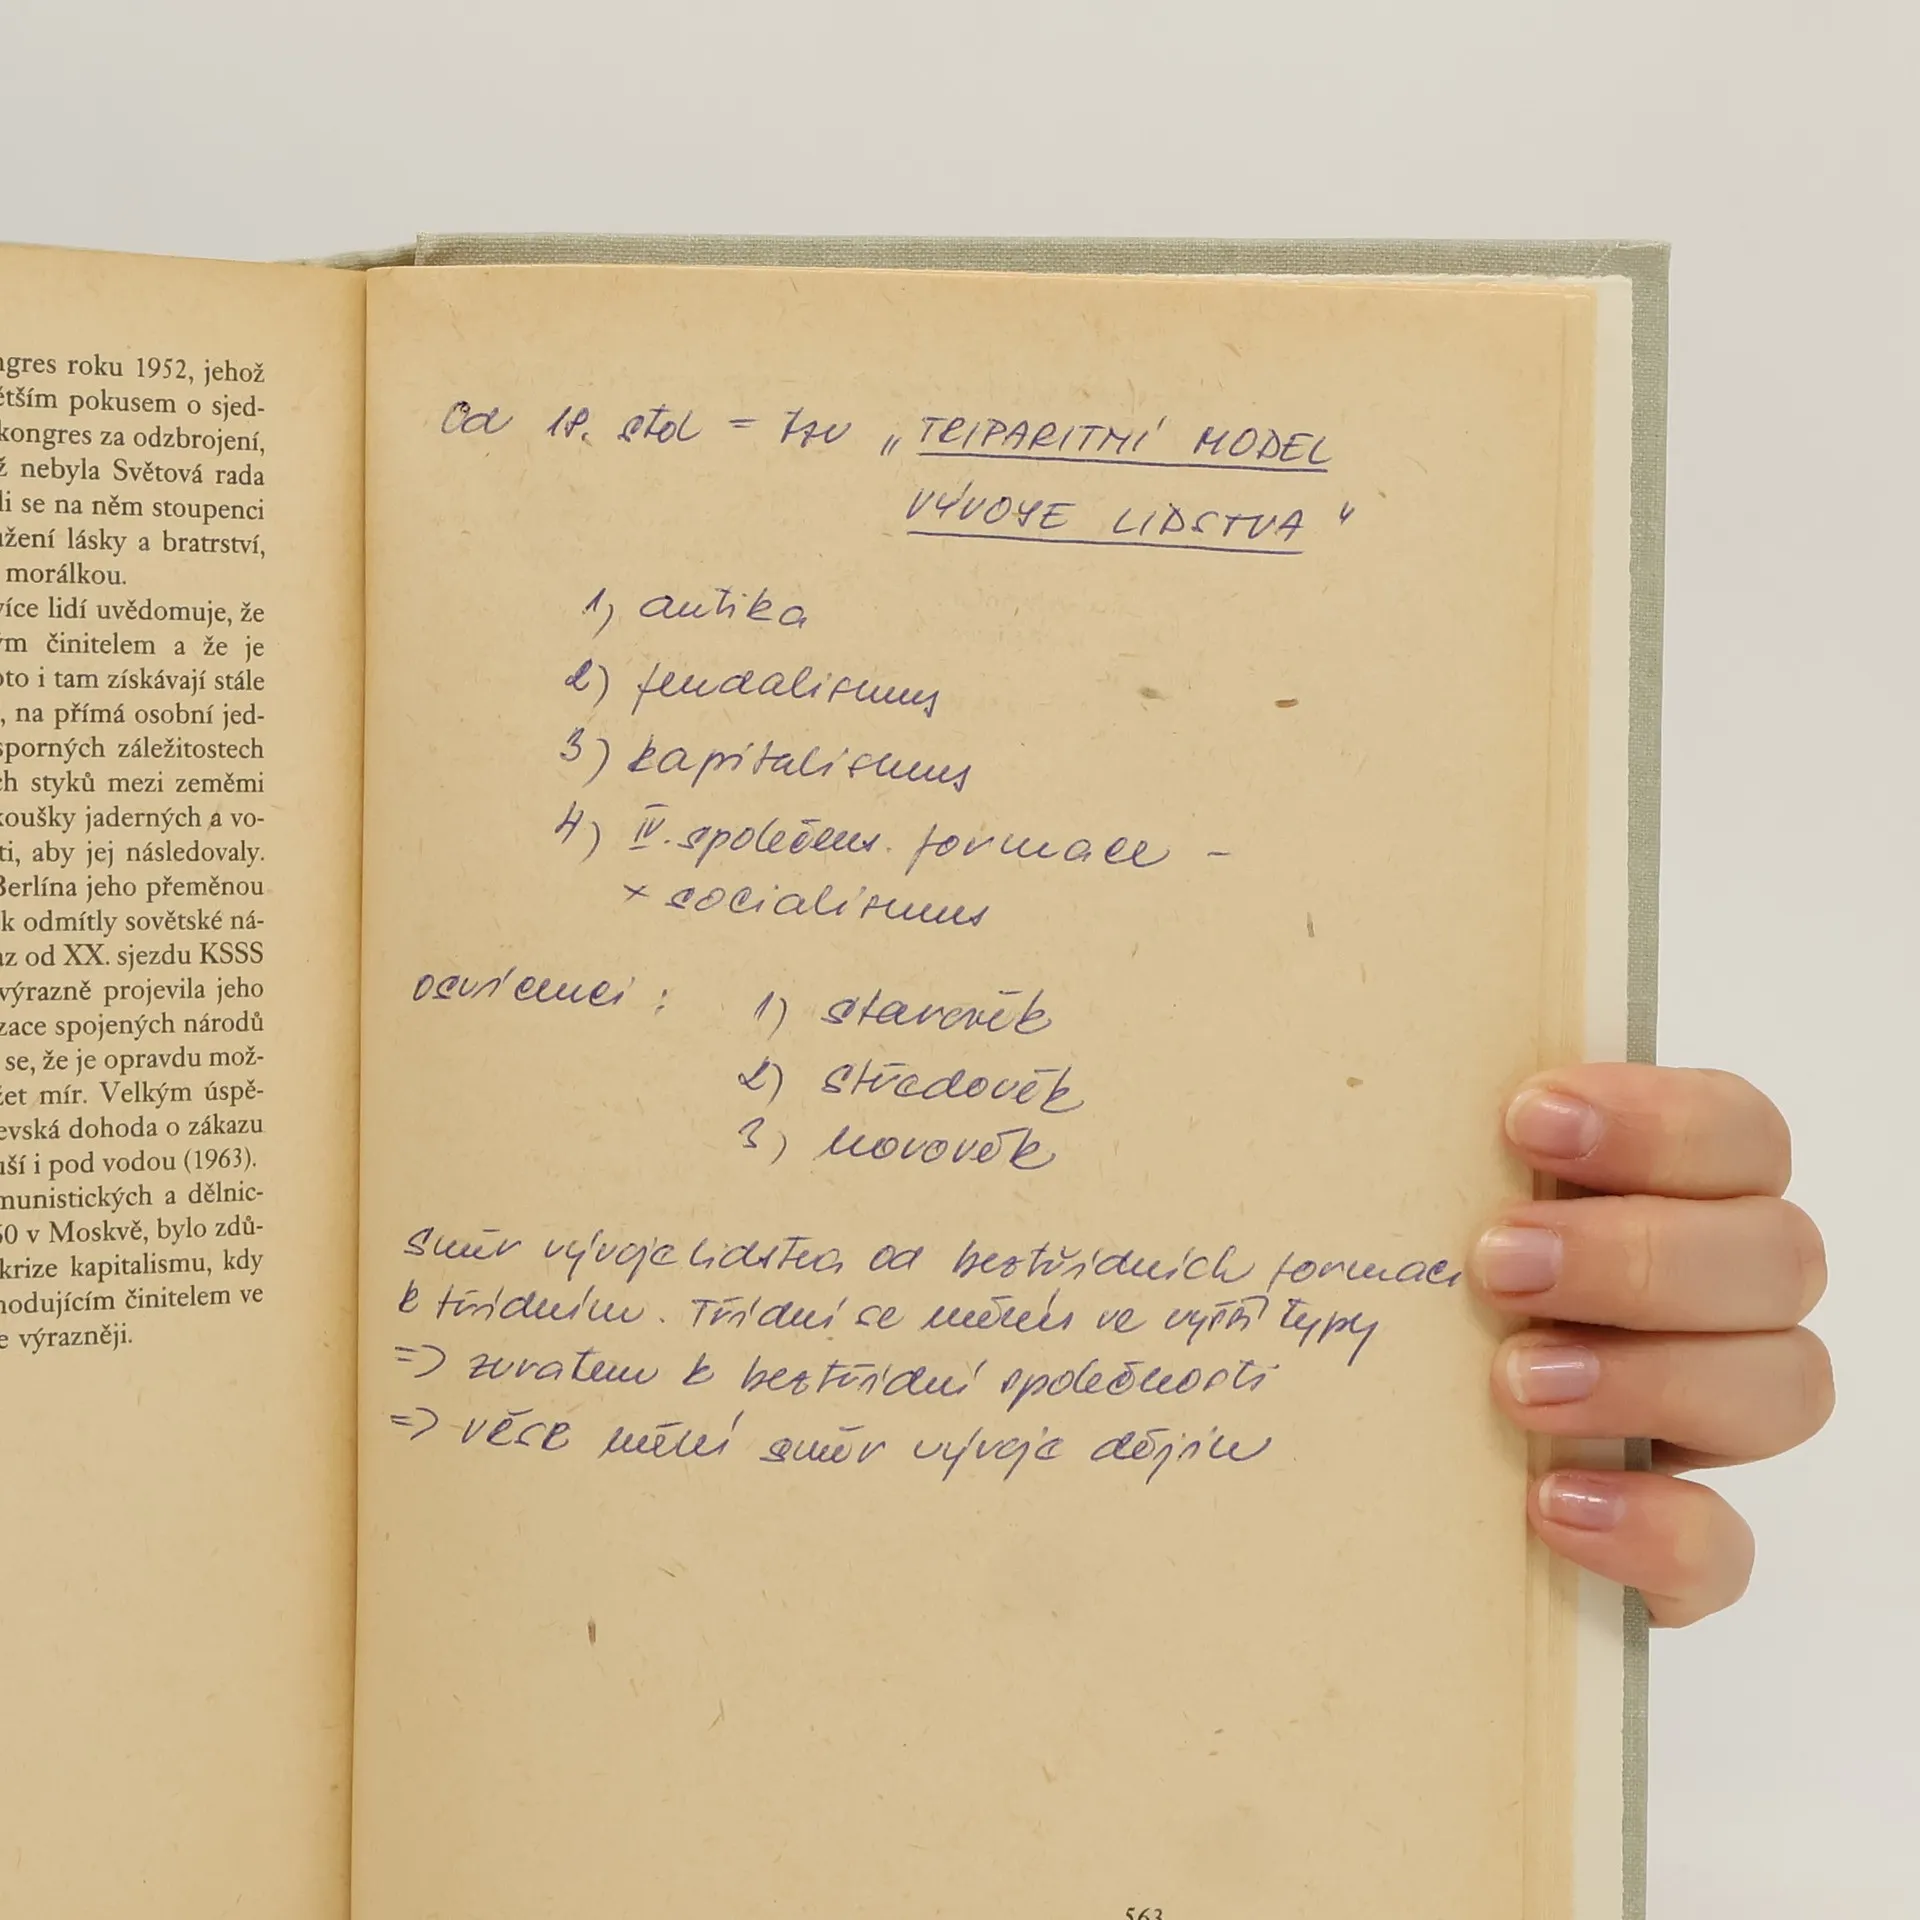 ngres roku 1952, jehož
ětším pokusem o sjed-
kongres za odzbrojení,
ž nebyla Světová rada
li se na něm stoupenci
užení lásky a bratrství,
morálkou.
více lidí uvědomuje, že
ým činitelem a že je
oto i tam získávají stále
, na přímá osobní jed-
sporných záležitostech
ch styků mezi zeměmi
koušky jaderných a vo-
ti, aby jej následovaly.
Berlína jeho přeměnou
k odmítly sovětské ná-
az od XX. sjezdu KSSS
výrazně projevila jeho
zace spojených národů
se, že je opravdu mož-
žet mír. Velkým úspě-
evská dohoda o zákazu
uší i pod vodou (1963).
munistických a dělnic-
60 v Moskvě, bylo zdů-
krize kapitalismu, kdy
hodujícím činitelem ve
e výrazněji.
Od 18. stol = tzv „TRIPARITNÍ MODEL
VÝVOJE LIDSTVA"
1, antika
2) feudalismus
3) kapitalismus
4) IV. společens. formace -
x socialismus
osvícenci : 1) starověk
2) středověk
3, novověk
Směr vývoje lidstva od beztřídních formací
k třídním. Třídní se mění ve vyšší typy
=> zvratem k beztřídní společnosti
=> vě se mění směr vývoje dějin
563